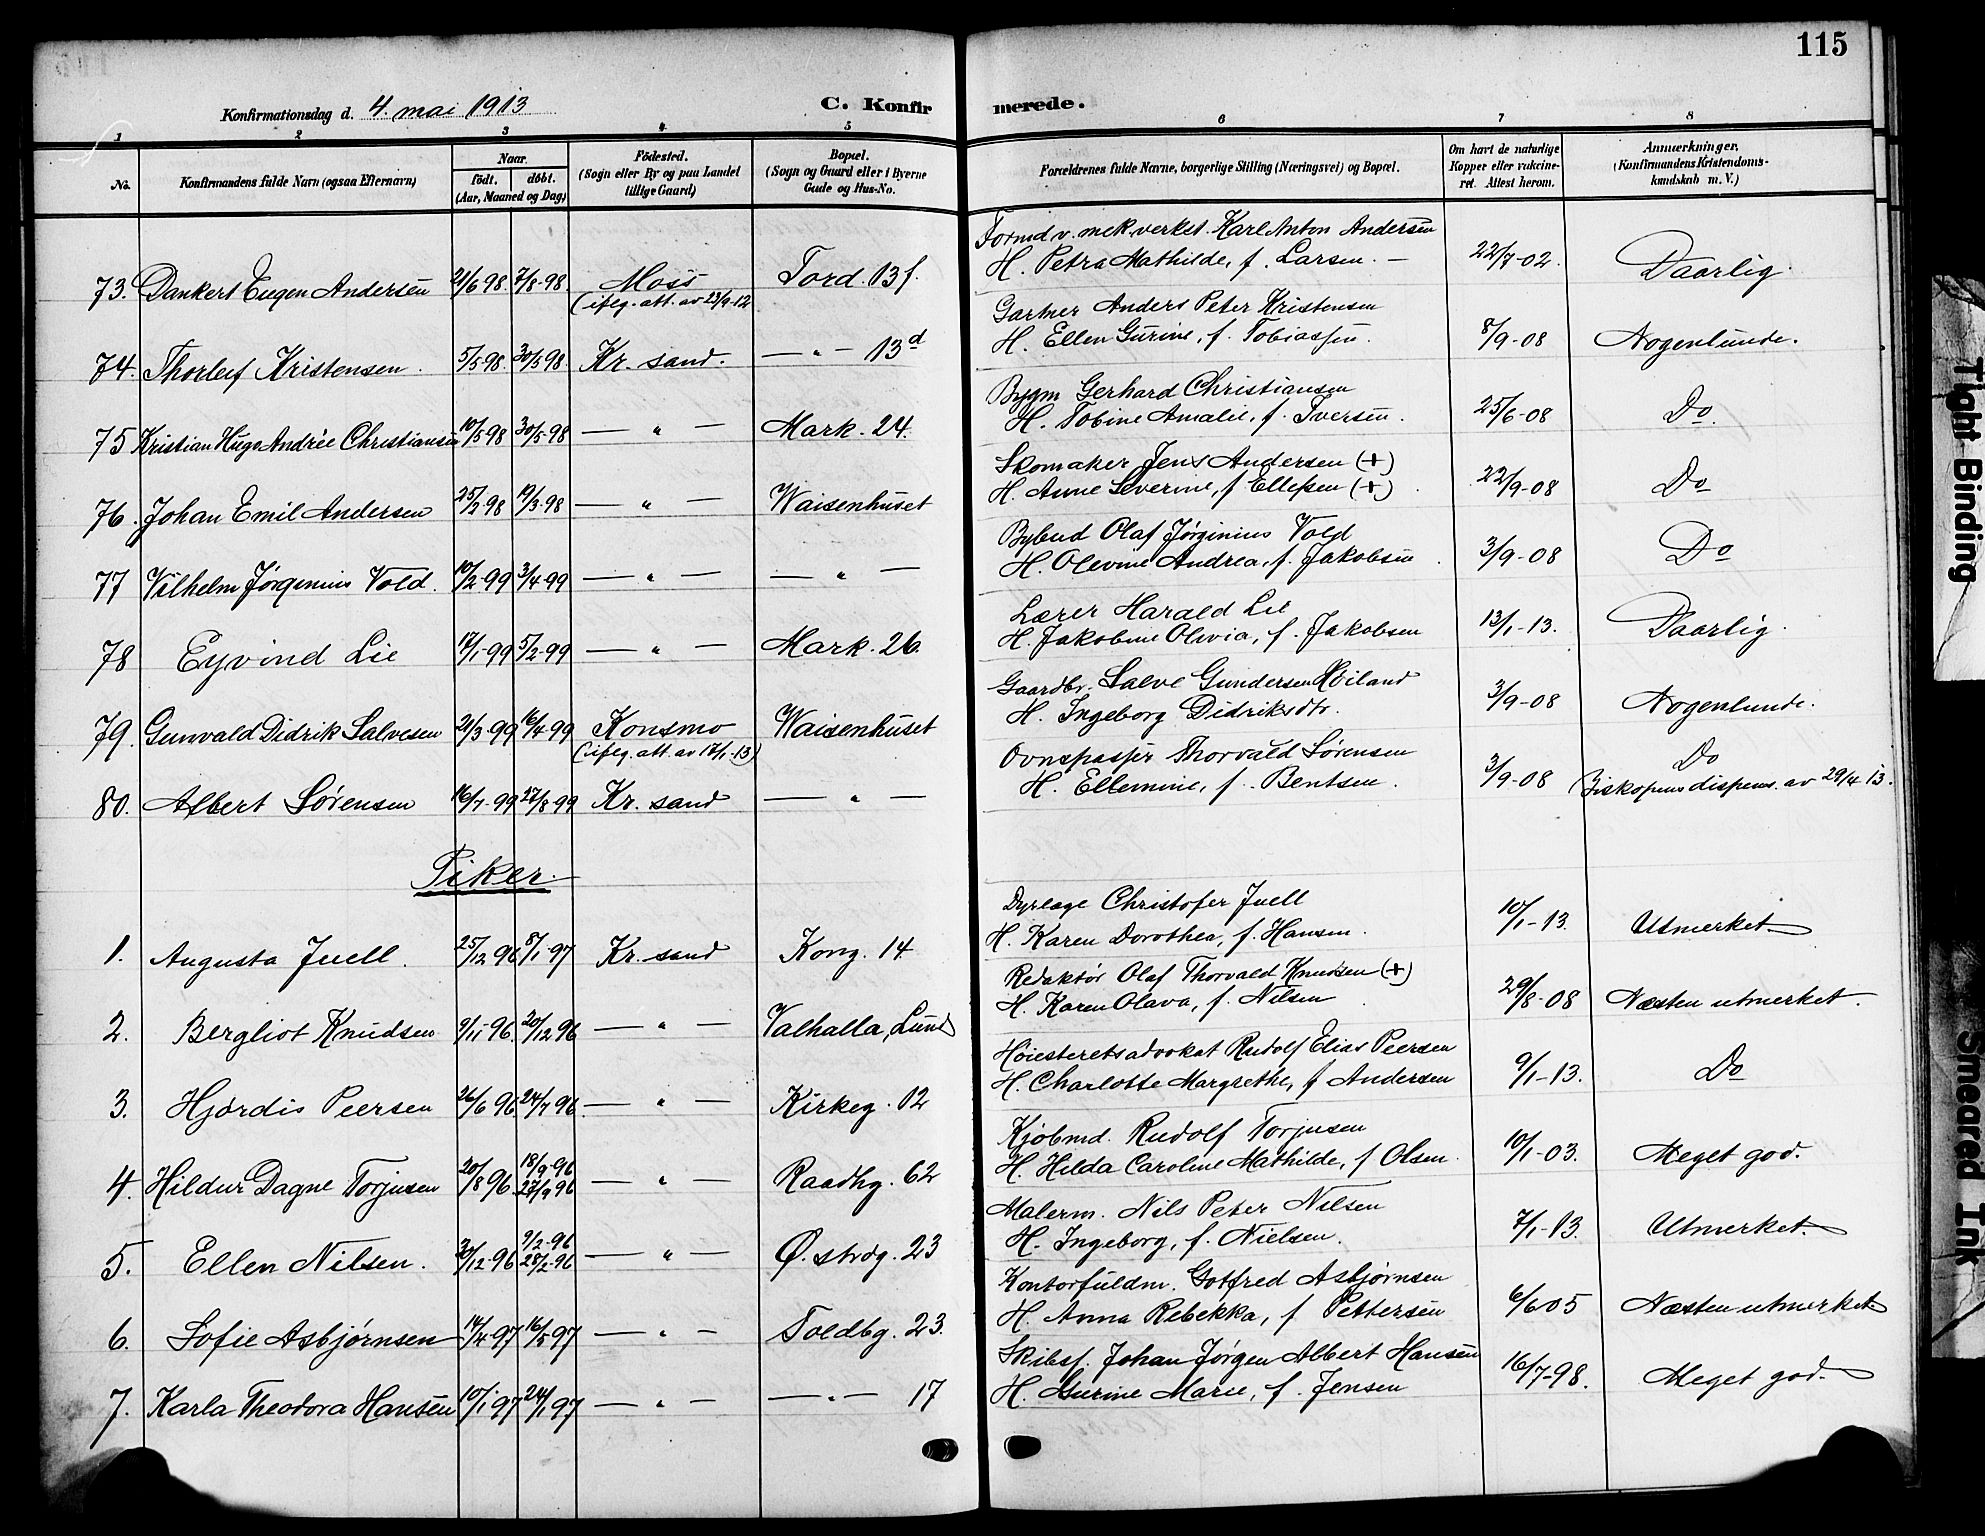 115
Konfirmationsdag d. 4. mai 1913
C. Konfirmerede.
1 2 3 4 5 6 7 8
No.
Konfirmandens fulde Navn (ogsaa Efternavn)
Naar.
født. døbt.
(Aar, Maaned og Dag)
Fødested.
(Sogn eller By og paa Landet
tillige Gaard)
Bopæl.
(Sogn og Gaard eller i Byerne
Gade og Hus-No.
Forældrenes fulde Navne, borgerlige Stilling (Næringsvei) og Bopæl.
Om havt de naturlige
Kopper eller vakcine-
ret. Attest herom.
Anmærkninger.
(Konfirmandens Kristendoms-
kundskab m. V.)
Formd v. mek. verkst. Karl Anton Andersen
73. Dankert Eugen Andersen 21/6 98 7/8-98 Moss Tord. 13f. H. Petra Mathilde, f. Larsen. – 22/7-02. Daarlig.
(ifølg. att. av 23/9-12
Gartner Anders Peter Kristensen
74. Thorleif Kristensen. 5/5 98. 30/5 98. Kr. sand. — " — 13d H. Ellen Gurine, f. Tobiassen. 8/9-08 Nogenlunde.
Bygm Gerhard Christiansen
75 Kristian Hugo Andrée Christiansen 10/5 98 30/5-98 — " — Mark. 24. H. Tobine Amalie, f. Iversen. 25/6-08 Do.
Skomaker Jens Andersen (+)
76. Johan Emil Andersen 25/2 98 19/3-98 — " — Waisenhuset H. Anne Severine, f Ellefsen (+). 22/9-08 Do
Bybud Olaf Jørginius Vold
77 Vilhelm Jørgenius Vold. 10/2-99 3/4-99 — " — — " — H. Olevine Andrea, f. Jakobsen. 3/9-08 Do
Lærer Harald Lie
78 Eyvind Lie 17/1-99 5/2-99 — " — Mark. 26. H. Jakobine Olivia, f. Jakobsen 13/1-13. Daarlig.
Gaardbr. Salve Gundersen Høiland
79. Gunvald Didrik Salvesen 21/3-99 16/4-99 Konsmo Waisenhuset H. Ingeborg Didriksdtr. 3/9-08 Nogenlunde.
(ifølg. att. av 17/1-13)
Ovnspasser Thorvald Sørensen Do
80. Albert Sørensen 16/7-99 27/8-99 Kr. sand — " — H. Ellemine, f. Bentsen. 3/9-08 Biskopens dispens. av 29/4 13.
Piker.
Dyrlæge Christofer Juell
1. Augusta Juell. 25/12 96 8/1-97 Kr. sand Kong. 14 H. Karen Dorothea, f. Hansen. 10/1-13. Utmerket
Redaktør Olaf Thorvald Knudsen (+)
2. Bergliot Knudsen 9/11-96. 20/12 96 — " — Valhalla, Lund H. Karen Olava, f. Nilsen. 29/8-08 Næsten utmerket.
Høiesteretsadvokat Rudolf Elias Peersen
3. Hjørdis Peersen 26/6 96 24/7 96. — " — Kirkeg. 12 H. Charlotte Margrethe, f Andersen 9/1-13. Do
Kjøbmd. Rudolf Torjusen
4. Hildur Dagne Torjusen 20/8 96 18/9-96 27/9 96 — " — Raadhg. 62 H. Hilda Caroline Mathilde, f Olsen. 10/1-03. Meget god.
Malerm. Nils Peter Nilsen
5. Ellen Nilsen. 30/12-96 9/2-96 28/2-96 — " — Ø. strdg. 23 H. Ingeborg, f. Nielsen. 7/1-13. Utmerket.
Kontorfuldm. Gotfred Asbjørnsen
6. Sofie Asbjørnsen 14/4-97 16/5 97 — " — Toldbg. 23. H. Anna Rebekka, f Pettersen 6/6 05 Næsten utmerket
Skibsf. Johan Jørgen Albert Hansen
7. Karla Theodora Hansen 10/1 97 24/1 97 — " — — " — 17 H. Gurine Marie, f. Jensen 16/7-98. Meget god.
Tight Binding
Smeared Ink